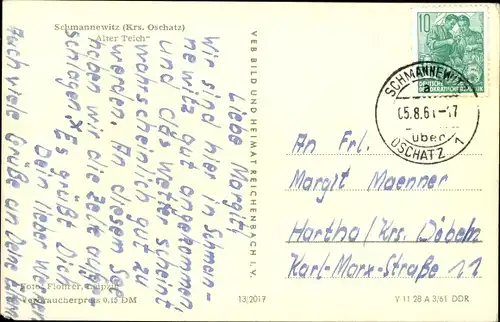 Schmannewitz (Krs. Oschatz)
"Alter Teich"
Liebe Margit,
wir sind hier in Schman-
newitz gut angekommen
und das Wetter scheint
wahrscheinlich gut zu
werden. An diesem See
haben wir die Zelte aufge-
schlagen. X Es grüßt Dich
Dein lieber
Auch viele Grüße an Deine Eltern
Foto: Flohrer, Leipzig
Verbraucherpreis 0,15 DM
VEB BILD UND HEIMAT REICHENBACH i. V.
13/2017
10
DEUTSCHE
DEMOKRATISCHE REPUBLIK
SCHMANNEWITZ
05.8.61-17
über
OSCHATZ 1
An Frl.
Margit Maenner
Hartha/Krs. Döbeln
Karl-Marx-Straße 11
V 11 28 A 3/61 DDR